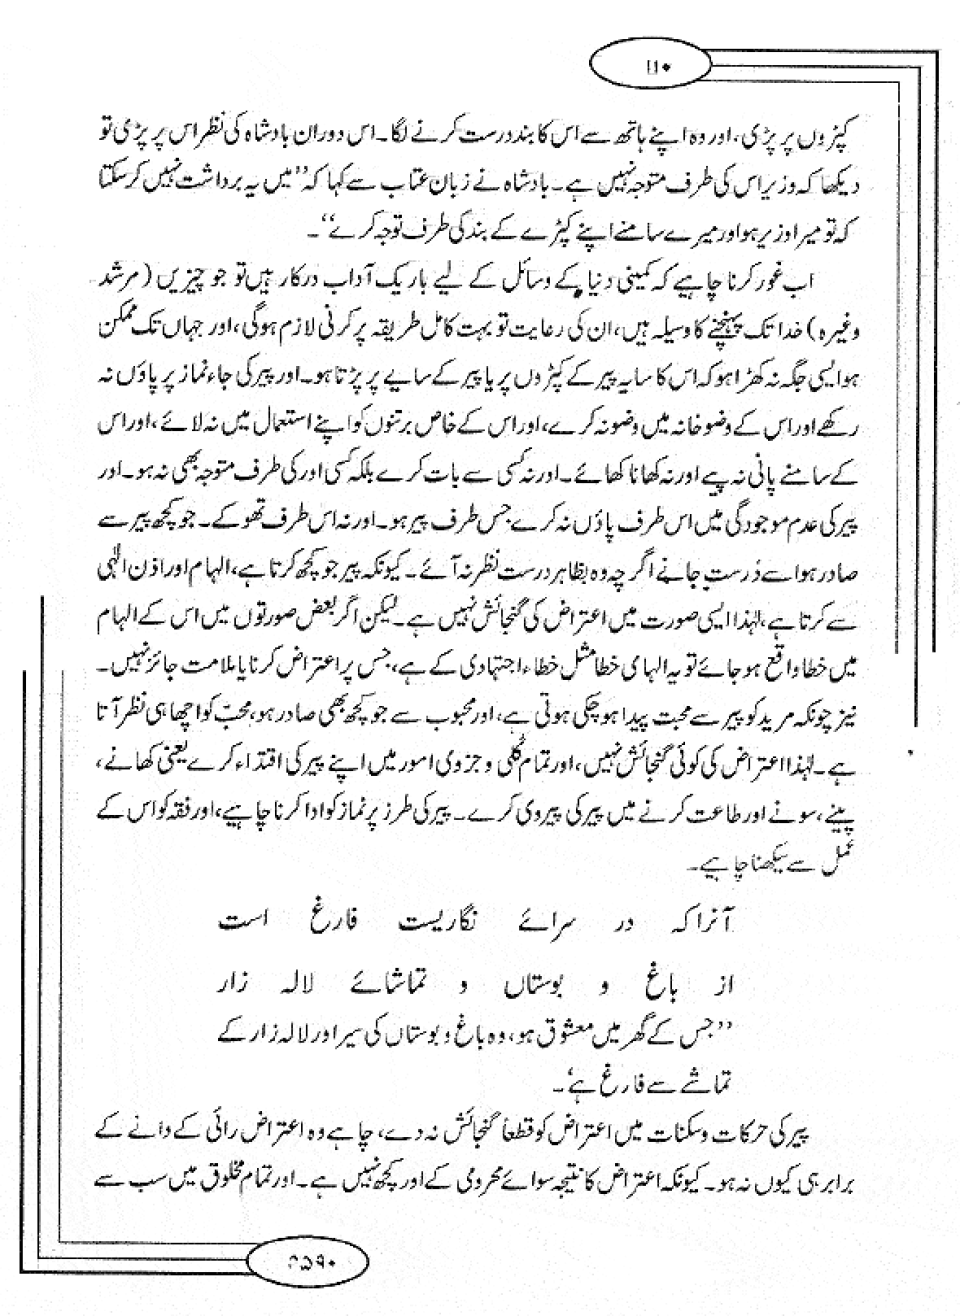 ۱۱۰
کپڑوں پر پڑی، اور وہ اپنے ہاتھ سے اس کا بند درست کرنے لگا۔ اس دوران بادشاہ کی نظر اس پر پڑی تو
دیکھا کہ وزیر اس کی طرف متوجہ نہیں ہے۔ بادشاہ نے زبان عتاب سے کہا کہ ’’میں یہ برداشت نہیں کر سکتا
کہ تو میرا وزیر ہو اور میرے سامنے اپنے کپڑے کے بند کی طرف توجہ کرے‘‘۔
اب غور کرنا چاہیے کہ کمینی دنیا کے وسائل کے لیے باریک آداب درکار ہیں تو جو چیزیں (مرشد
وغیرہ) خدا تک پہنچنے کا وسیلہ ہیں، ان کی رعایت تو بہت کامل طریقہ پر کرنی لازم ہوگی، اور جہاں تک ممکن
ہو ایسی جگہ نہ کھڑا ہو کہ اس کا سایہ پیر کے کپڑوں پر یا پیر کے سایے پر پڑتا ہو۔ اور پیر کی جاء نماز پر پاؤں نہ
رکھے اور اس کے وضو خانہ میں وضو نہ کرے، اور اس کے خاص برتنوں کو اپنے استعمال میں نہ لائے، اور اس
کے سامنے پانی نہ پیے اور نہ کھانا کھائے۔ اور نہ کسی سے بات کرے بلکہ کسی اور کی طرف متوجہ بھی نہ ہو۔ اور
پیر کی عدم موجودگی میں اس طرف پاؤں نہ کرے جس طرف پیر ہو۔ اور نہ اس طرف تھوکے۔ جو کچھ پیر سے
صادر ہو اسے دُرست جانے اگرچہ وہ بظاہر درست نظر نہ آئے۔ کیونکہ پیر جو کچھ کرتا ہے، الہام اور اذن الٰہی
سے کرتا ہے، لہٰذا ایسی صورت میں اعتراض کی گنجائش نہیں ہے۔ لیکن اگر بعض صورتوں میں اس کے الہام
میں خطا واقع ہو جائے تو یہ الہامی خطا مثل خطاء اجتہادی کے ہے، جس پر اعتراض کرنا یا ملامت جائز نہیں۔
نیز چونکہ مرید کو پیر سے محبت پیدا ہو چکی ہوتی ہے، اور محبوب سے جو کچھ بھی صادر ہو، محبّ کو اچھا ہی نظر آتا
ہے۔ لہٰذا اعتراض کی کوئی گنجائش نہیں، اور تمام کُلی و جزوی امور میں اپنے پیر کی اقتداء کرے یعنی کھانے،
پینے، سونے اور طاعت کرنے میں پیر کی پیروی کرے۔ پیر کی طرز پر نماز کو ادا کرنا چاہیے، اور فقہ کو اس کے
عمل سے سیکھنا چاہیے۔
آنرا کہ در سرائے نگاریست فارغ است
از باغ و بوستاں و تماشائے لالہ زار
’’جس کے گھر میں معشوق ہو، وہ باغ و بوستاں کی سیر اور لالہ زار کے
تماشے سے فارغ ہے‘۔
پیر کی حرکات و سکنات میں اعتراض کو قطعاً گنجائش نہ دے، چاہے وہ اعتراض رائی کے دانے کے
برابر ہی کیوں نہ ہو۔ کیونکہ اعتراض کا نتیجہ سوائے محرومی کے اور کچھ نہیں ہے۔ اور تمام مخلوق میں سب سے